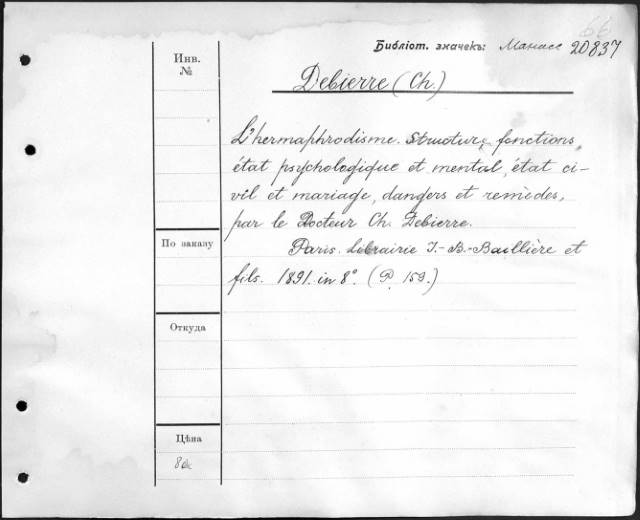 66
Библіот. значекъ: Манасс 20837
Инв.
№
Debierre (Ch.)
L'hermaphrodisme. Structure, fonctions,
état psychologique et mental, état ci-
vil et mariage, dangers et remèdes,
par le Docteur Ch. Debierre.
По заказу
Paris. Librairie J.-B.-Baillière et
fils. 1891. in 8°. (P. 159.)
Откуда
Цѣна